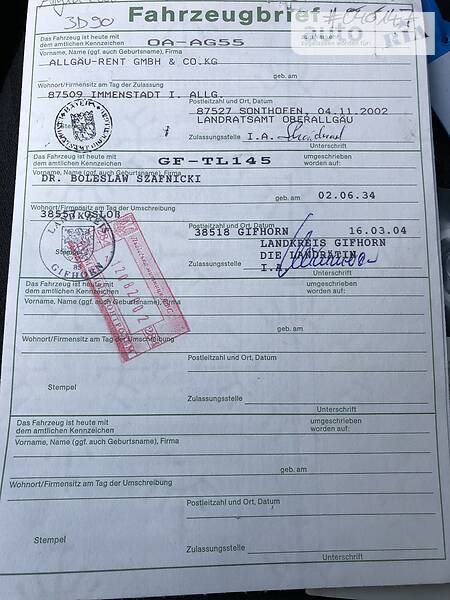 3D90
Fahrzeugbrief
auto
RIA
Das Fahrzeug ist heute mit
dem amtlichen Kennzeichen
OA-AG55
zugelassen worden für:
Vorname, Name (ggf. auch Geburtsname), Firma
ALLGÄU-RENT GMBH & CO.KG
geb. am
Wohnort/Firmensitz am Tag der Zulassung
87509 IMMENSTADT I. ALLG.
Postleitzahl und Ort, Datum
87527 SONTHOFEN, 04.11.2002
LANDRATSAMT OBERALLGÄU
Stempel
Zulassungsstelle
I.A.
Unterschrift
Das Fahrzeug ist heute mit
dem amtlichen Kennzeichen
GF-TL145
umgeschrieben
worden auf:
Vorname, Name (ggf. auch Geburtsname), Firma
DR. BOLESLAW SZAFNICKI
geb. am
02.06.34
Wohnort/Firmensitz am Tag der Umschreibung
38557 OSLOß
Postleitzahl und Ort, Datum
38518 GIFHORN
16.03.04
LANDKREIS GIFHORN
DIE LANDRÄTIN
LANDKREIS
GIFHORN
Zulassungsstelle
I.A.
Unterschrift
Das Fahrzeug ist heute mit
dem amtlichen Kennzeichen
umgeschrieben
worden auf:
Vorname, Name (ggf. auch Geburtsname), Firma
geb. am
Wohnort/Firmensitz am Tag der Umschreibung
Postleitzahl und Ort, Datum
Stempel
Zulassungsstelle
Unterschrift
Das Fahrzeug ist heute mit
dem amtlichen Kennzeichen
umgeschrieben
worden auf:
Vorname, Name (ggf. auch Geburtsname), Firma
geb. am
Wohnort/Firmensitz am Tag der Umschreibung
Postleitzahl und Ort, Datum
Stempel
Zulassungsstelle
Unterschrift